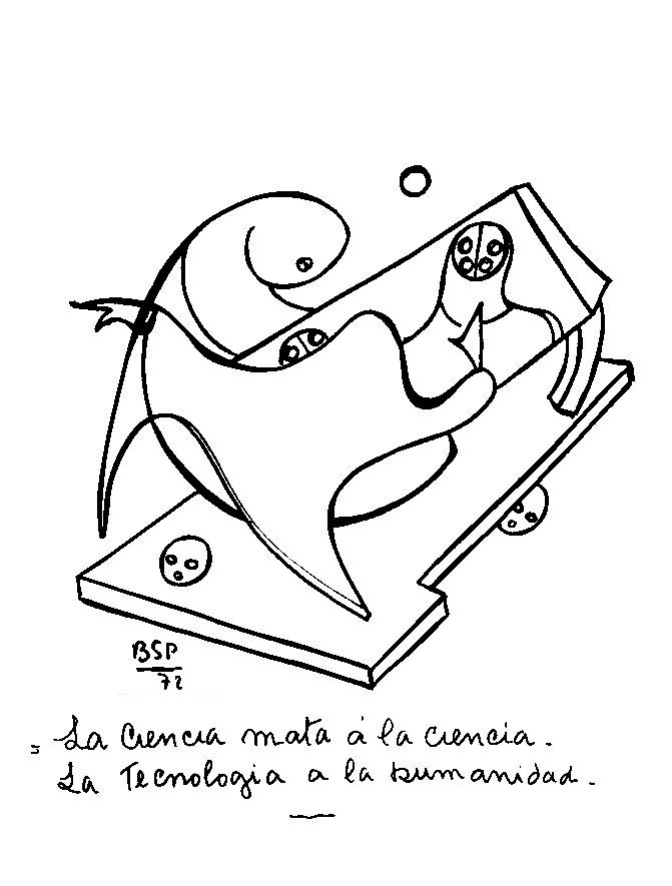 BSP
72
= La Ciencia mata á la ciencia.
La Tecnologia a la humanidad.